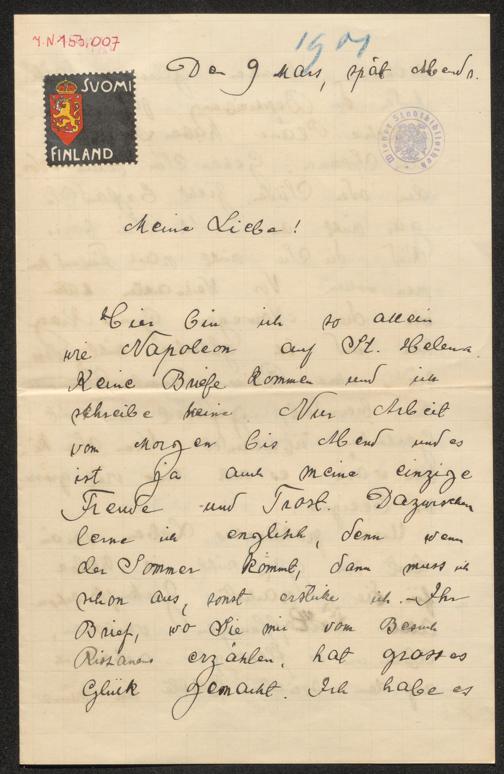 J.N 153,007
1901
Den 9 Mars, spät Abends.
SUOMI
FINLAND
Wiener Stadtbibliothek
Meine Liebe!
Hier bin ich so allein
wie Napoleon auf St. Helena.
Keine Briefe kommen und ich
schreibe keine Nur Arbeit
vom Morgen bis Abend und es
ist ja auch meine einzige
Freude und Trost. Dazwischen
lerne ich englisch, denn wenn
der Sommer kommt, dann muss ich
schon aus, sonst erstike ich. – Ihr
Brief, wo Sie mir vom Besuch
erzählen, hat grosses
Glück gemacht. Ich habe es